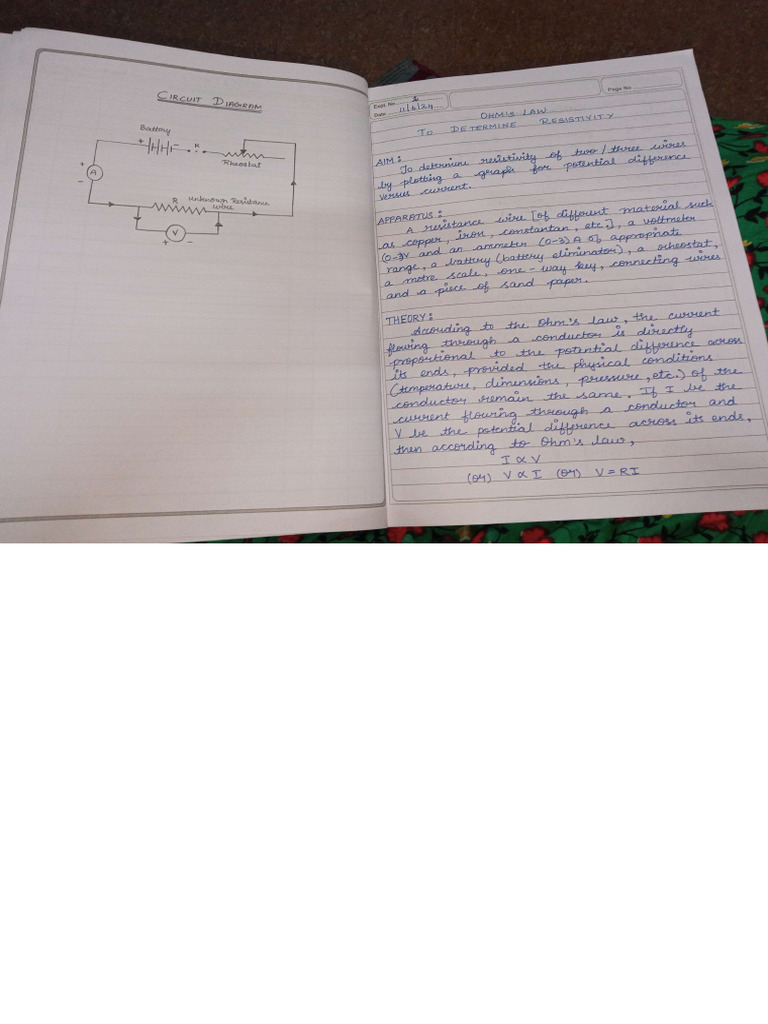 CIRCUIT DIAGRAM
Battery
+ -
K
Rheostat
+
A
-
R unknown Resistance
wire
V
+ -
Expt. No. 1
Date 11/6/24
Page No.
OHM'S LAW
TO DETERMINE RESISTIVITY
AIM:
To determine resistivity of two/three wires
by plotting a graph for potential difference
versus current.
APPARATUS:
A resistance wire [of different material such
as copper, iron, constantan, etc.], a voltmeter
(0-3)V and an ammeter (0-3) A of appropriate
range, a battery (battery eliminator), a rheostat,
a metre scale, one-way key, connecting wires
and a piece of sand paper.
THEORY:
According to the Ohm's law, the current
flowing through a conductor is directly
proportional to the potential difference across
its ends, provided the physical conditions
(temperature, dimensions, pressure, etc.) of the
conductor remain the same. If I be the
current flowing through a conductor and
V be the potential difference across its ends,
then according to Ohm's law,
I ∝ V
(or) V ∝ I (or) V = RI